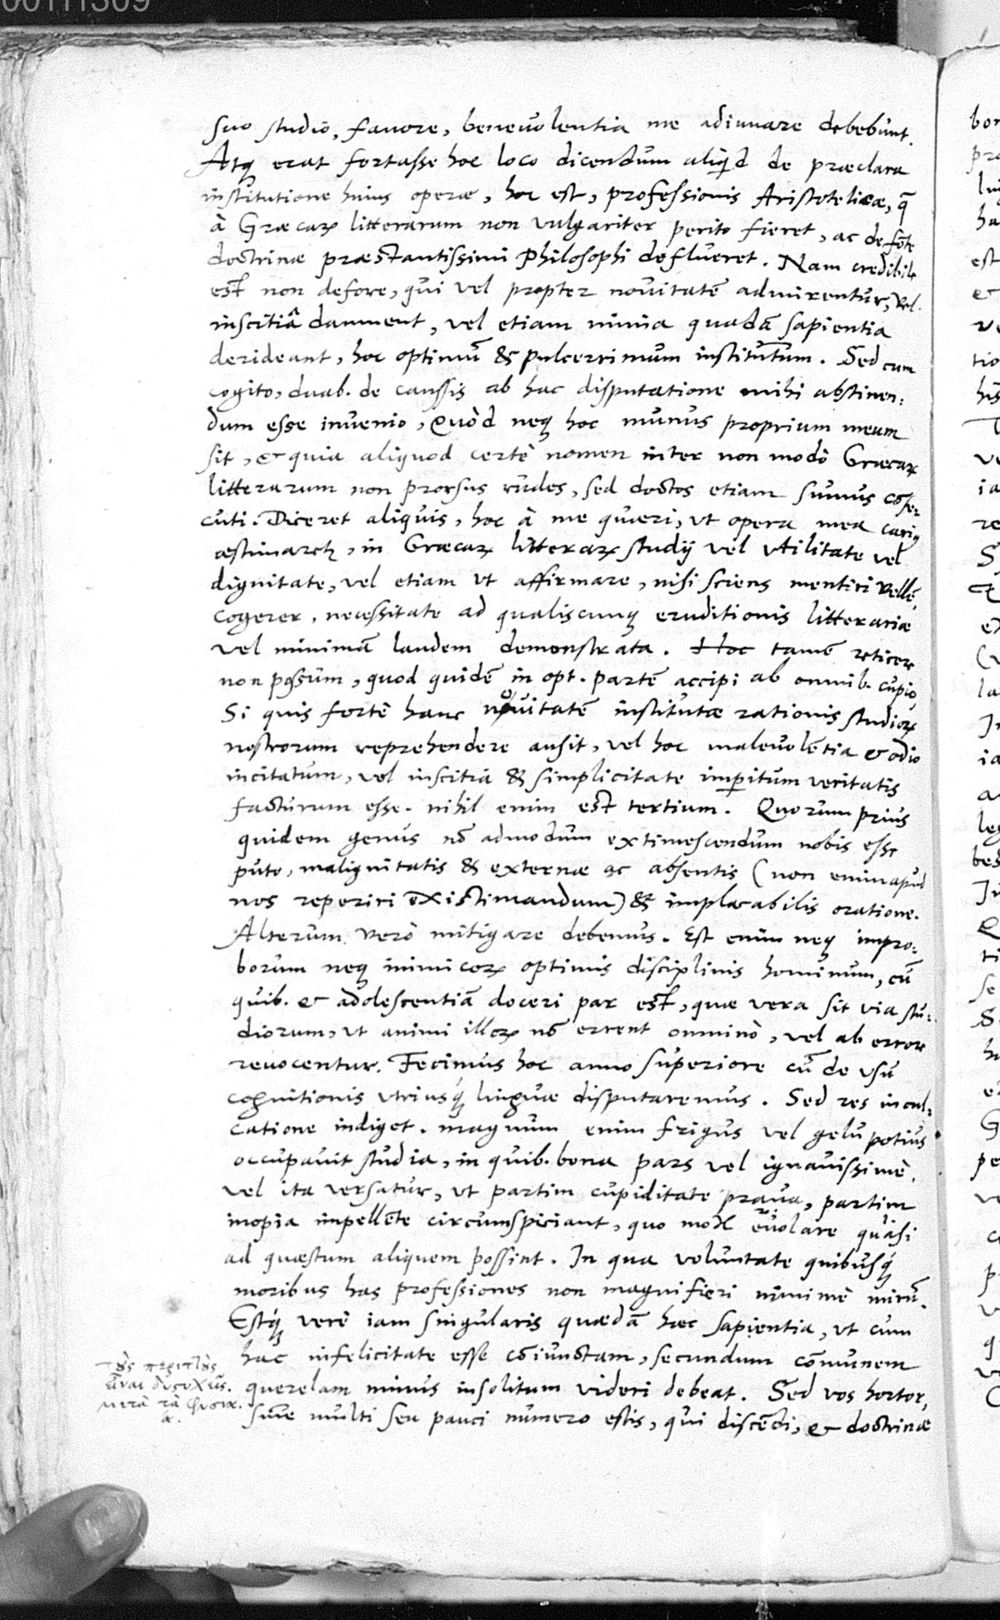 suo studio, favore, benevolentia me adiuvare debebunt.
Atq erat fortasse hoc loco dicendum aliqd de præclara
institutione huius operæ, hoc est, professionis Aristotelicæ, q̄
à Græcarꝝ litterarum non vulgariter perito fieret, ac de fōte
doctrinæ præstantissimi Philosophi deflueret. Nam credibile
est non defore, qui vel propter novitatē admirentur, vel
inscitiā damnent, vel etiam nimia quadā sapientia
derideant, hoc optimū & pulcerrimum institutum. Sed cum
cogito, duab. de caussis ab hac disputatione mihi abstinen:
dum esse invenio, Quòd neq hoc munus proprium meum
sit, & quia aliquod certè nomen inter non modò Græcarꝝ
litterarum non prorsus rudes, sed doctos etiam sumus cōse:
cuti. Diceret aliquis, hoc à me quæri, ut opera mea cariꝰ
æstimaretꝛ, in Græcarꝝ litterarꝝ studij vel utilitate vel
dignitate, vel etiam ut affirmare, nisi sciens mentiri vellē,
cogerer, necessitate ad qualiscunq eruditionis litterariæ
vel minimā laudem demonstrata. Hoc tamē reticere
non possum, quod quidē in opt. partē accipi ab omnib. cupio
Si quis fortè hanc novitatē institutæ rationis studiorꝝ
nostrorum reprehendere ausit, vel hoc malevolētia & odio
incitatum, vel inscitia & simplicitate imperitum veritatis
facturum esse. nihil enim est tertium. Quorum prius
quidem genus nō admodum extimescendum nobis esse
puto, malignitatis & externæ ac absentis (non enim apud
nos reperiri existimandum) & implacabilis oratione.
Alterum verò mitigare debemus. Est enim neq impro:
borum neq inimicorꝝ optimis disciplinis hominum, cū
quib. & adolescentiā doceri par est, quæ vera sit via stu:
diorum, ut animi illorꝝ nō errent omnino, vel ab errore
revocentur. Fecimus hoc anno superiore cū de usu
cognitionis utriusq́ linguæ disputaremus. Sed res incul:
catione indiget. magnum enim frigus vel gelu potius
occupavit studia, in quib. bona pars vel ignavissimè,
vel ita versatur, ut partim cupiditate prava, partim
inopia impellēte circumspiciant, quo mox evolare quasi
ad quæstum aliquem possint. In qua voluntate quibusq́
moribus has professiones non magnifieri minimè mirū.
Estq́ verè iam singularis quædā hæc sapientia, ut cum
hac infelicitate esse cōiunctam, secundum cōmunem
querelam minus insolitum videri debeat. Sed vos hortor,
sive multi seu pauci numero estis, qui discēdi, & doctrinæ